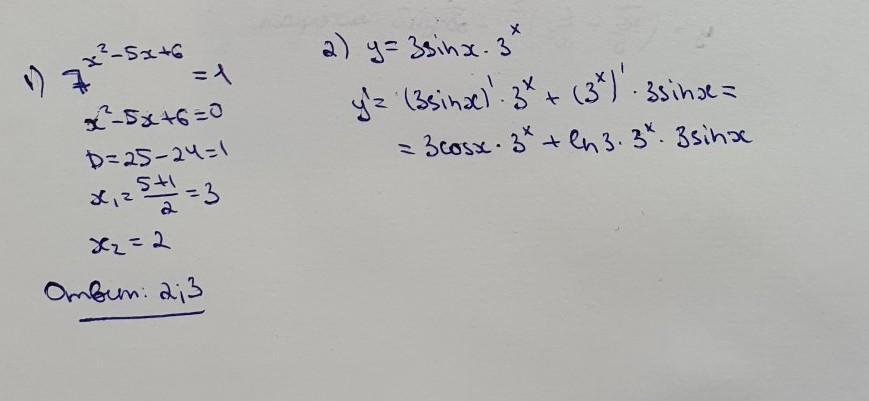 1) 7^{x²-5x+6} = 1
x²-5x+6=0
D=25-24=1
x₁=\frac{5+1}{2}=3
x₂=2
Ответ: 2;3
2) y=3sinx·3^x
y'=(3sinx)'·3^x+(3^x)'·3sinx=
=3cosx·3^x+ln3·3^x·3sinx